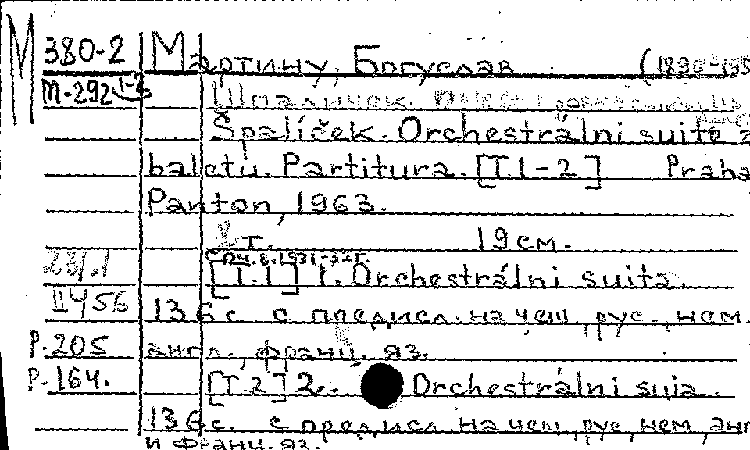 М 380-2 Мартину, Богуслав (1890-195
М-292 Шпаличек.
Špalíček. Orchestrálni suite z
baletu. Partitura. [T. 1-2] Praha
Panton, 1963.
2 т. 19 см.
[T. 1] 1. Orchestrálni suita.
II456 136 с. с предисл. на чеш., рус., нем.
Р. 205 англ., франц. яз.
Р. 164. [T 2] 2. Orchestrálni suia
136 с. с предисл. на чеш, рус, нем, анг
и франц. яз.